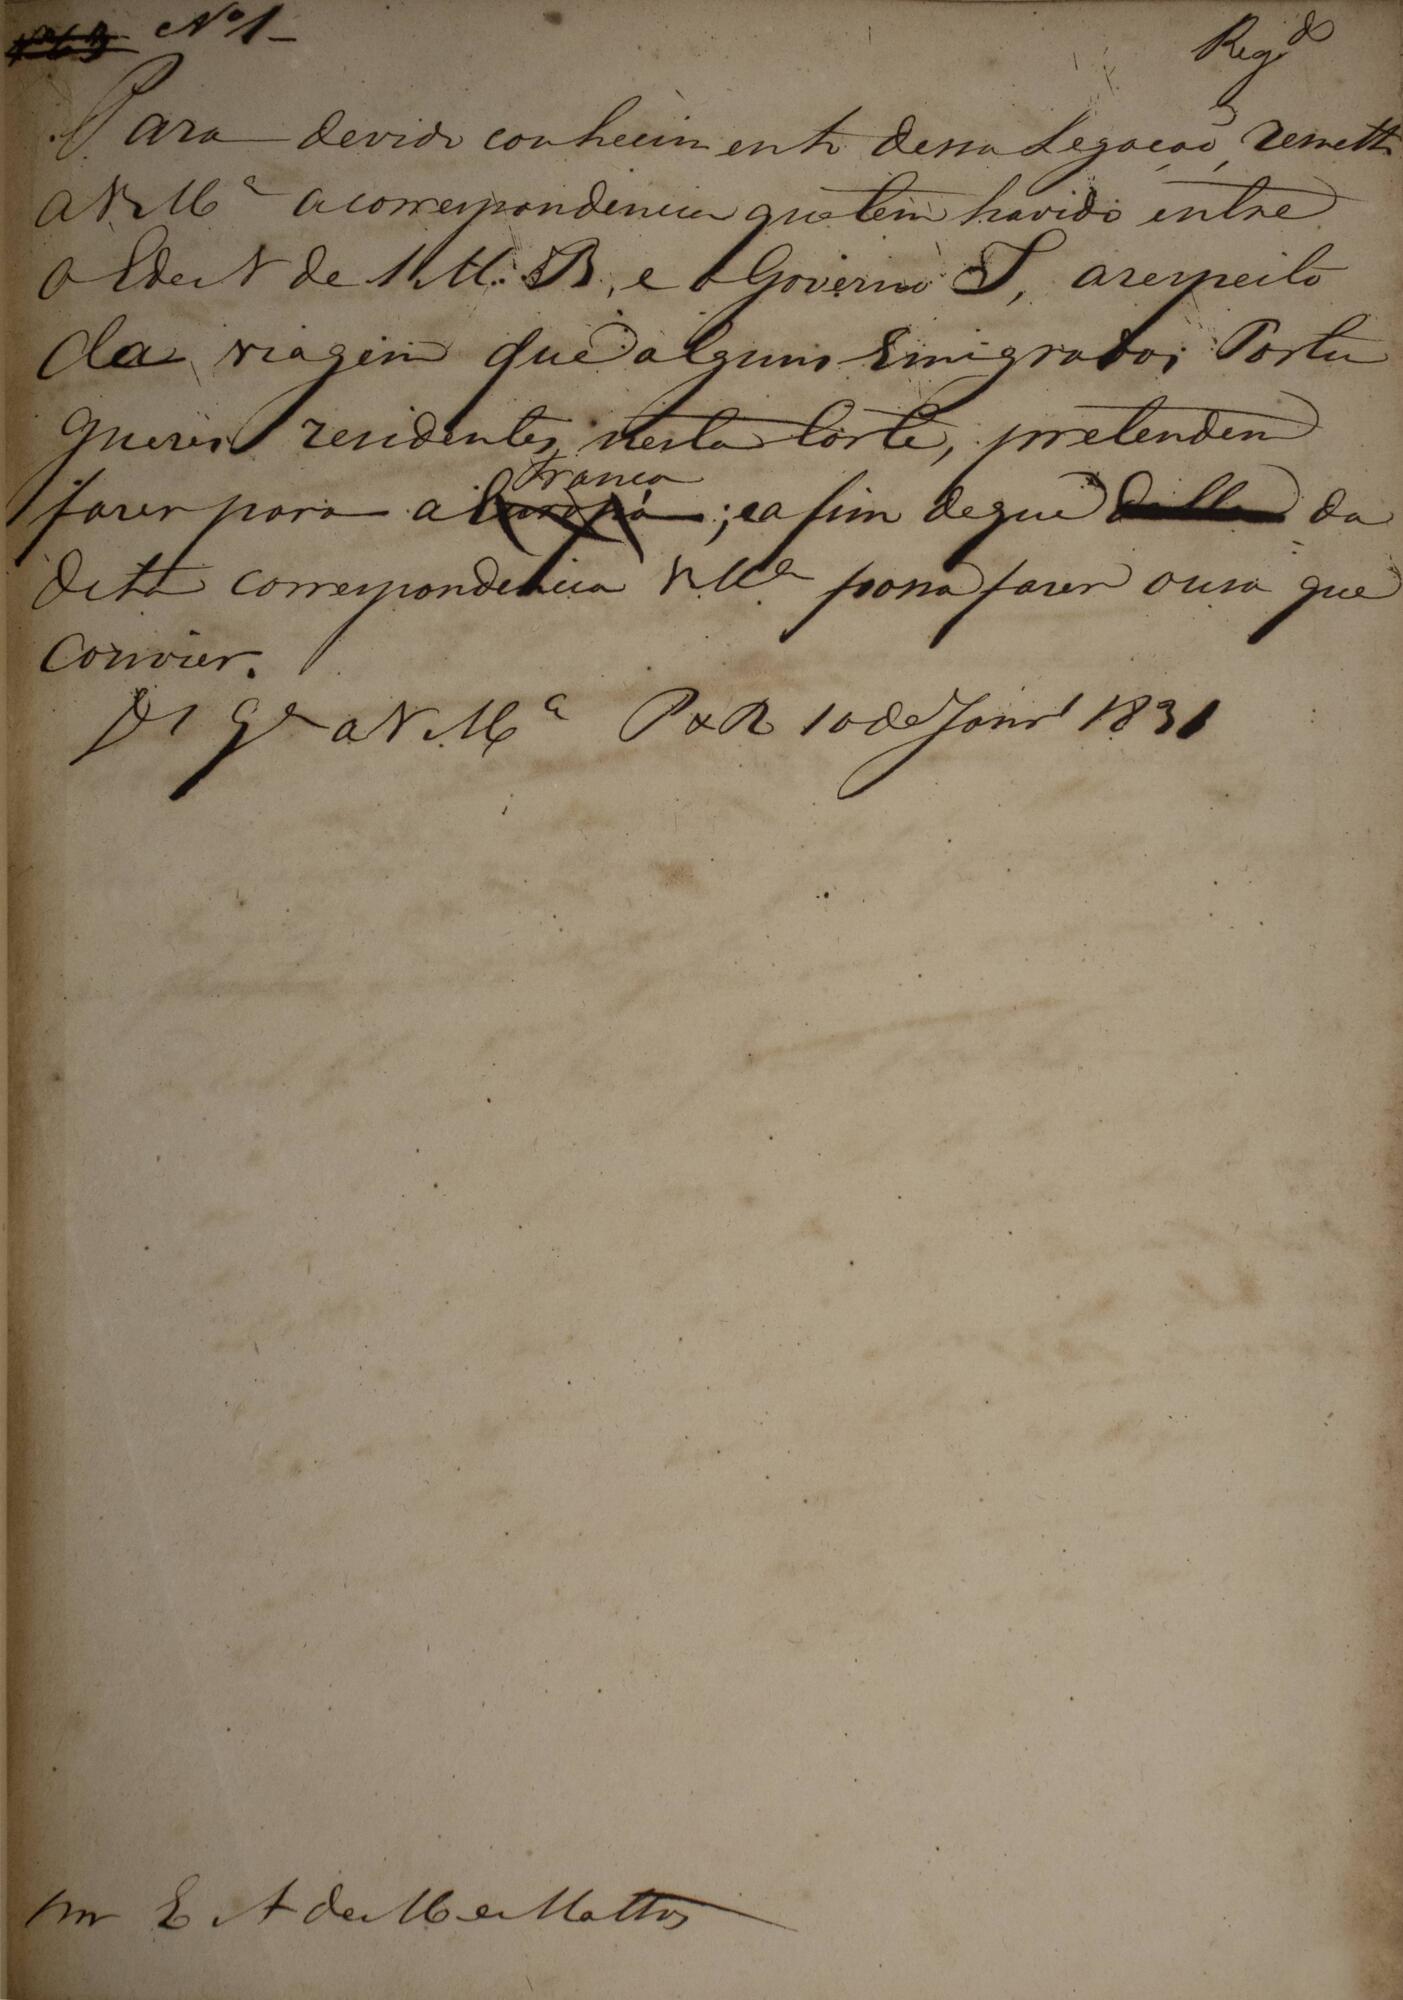 Nº 1
Regdo
Para devido conhecimento dessa Legação, remetto
a V Mce a correspondencia que tem havido entre
o E de N de S. M. B, e o Governo I, a respeito
da viagem que alguns Emigrados Portu
gueses residentes nesta Corte, pretendem
França
fazer para a Europa ; e a fim de que della da
dita correspondencia V Mce possa fazer o uso que
convier.
Ds Gde a V Mce P do R 10 de Janro 1831
Snr E A de Me Mattos